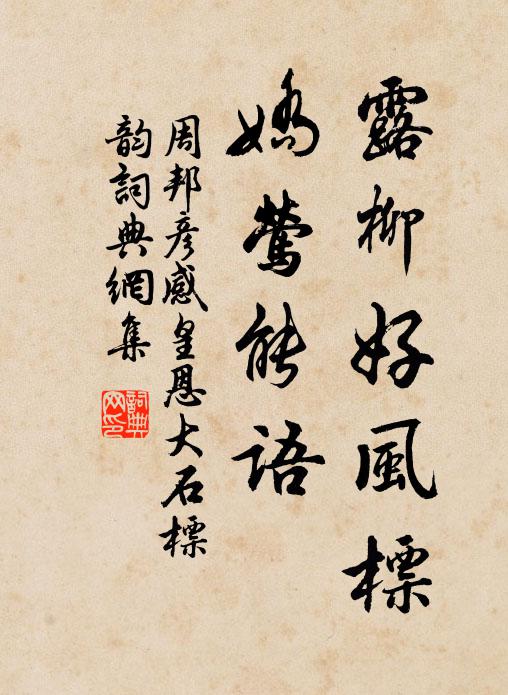 露柳好風標
嬌鶯能語
周邦彦感皇恩大石標
韵詞典網集
詞典网印